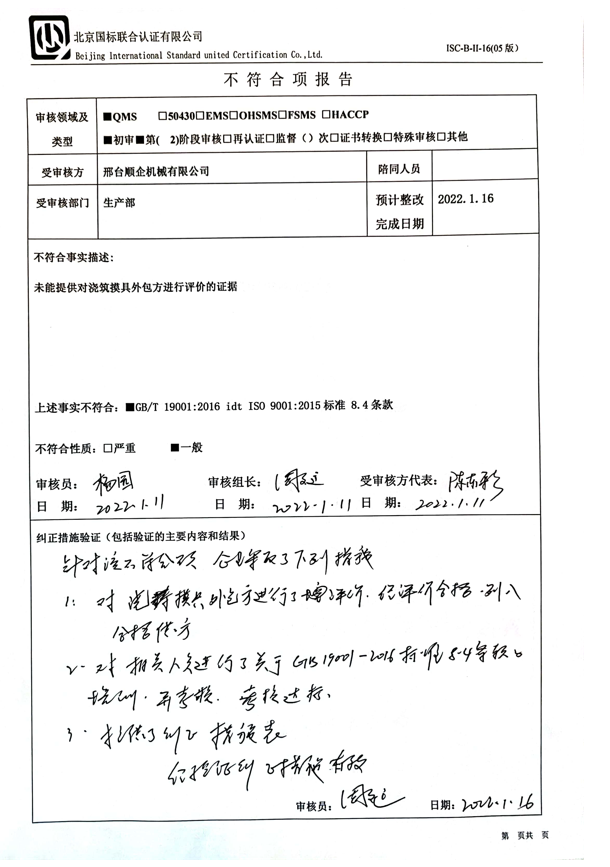 北京国标联合认证有限公司
Beijing International Standard united Certification Co.,Ltd.
ISC-B-II-16(05 版)
不符合项报告
审核领域及类型
■QMS □50430□EMS□OHSMS□FSMS □HACCP
■初审■第( 2)阶段审核□再认证□监督（）次□证书转换□特殊审核□其他
受审核方 邢台顺企机械有限公司 陪同人员
受审核部门 生产部 预计整改完成日期 2022.1.16
不符合事实描述:
未能提供对浇筑摸具外包方进行评价的证据
上述事实不符合：■GB/T 19001:2016 idt ISO 9001:2015标准 8.4条款
不符合性质：□严重 ■一般
审核员： 审核组长： 受审核方代表：
日 期： 2022.1.11 日 期： 2022.1.11 日 期： 2022.1.11
纠正措施验证（包括验证的主要内容和结果）
针对该不符合项 企业采取了下列措施
1: 对 浇铸模具外包方进行了评价. 经评价合格.列入
合格供方
2. 对相关人员进行了关于GB19001-2016标准8.4等条款
培训. 考核达标.
3. 提供了纠正措施表
经验证纠正措施有效
审核员： 日期：2022.1.16
第 页共 页